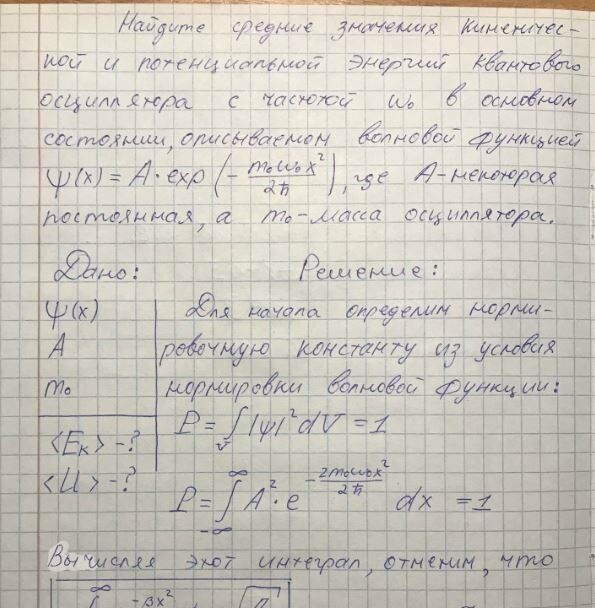 Найдите средние значения кинетичес-
кой и потенциальной энергий квантового
осциллятора с частотой ω₀ в основном
состоянии, описываемом волновой функцией
ψ(x) = A·exp(-m₀ω₀x²/2ħ), где A-некоторая
постоянная, а m₀-масса осциллятора.
Дано: Решение:
ψ(x)
A
m₀
<Eк> -?
<U> -?
Для начала определим норми-
ровочную константу из условия
нормировки волновой функции:
P = ∫_V |ψ|² dV = 1
P = ∫_{-∞}^{∞} A²·e^{-2m₀ω₀x²/2ħ} dx = 1
Вычисляя этот интеграл, отметим, что